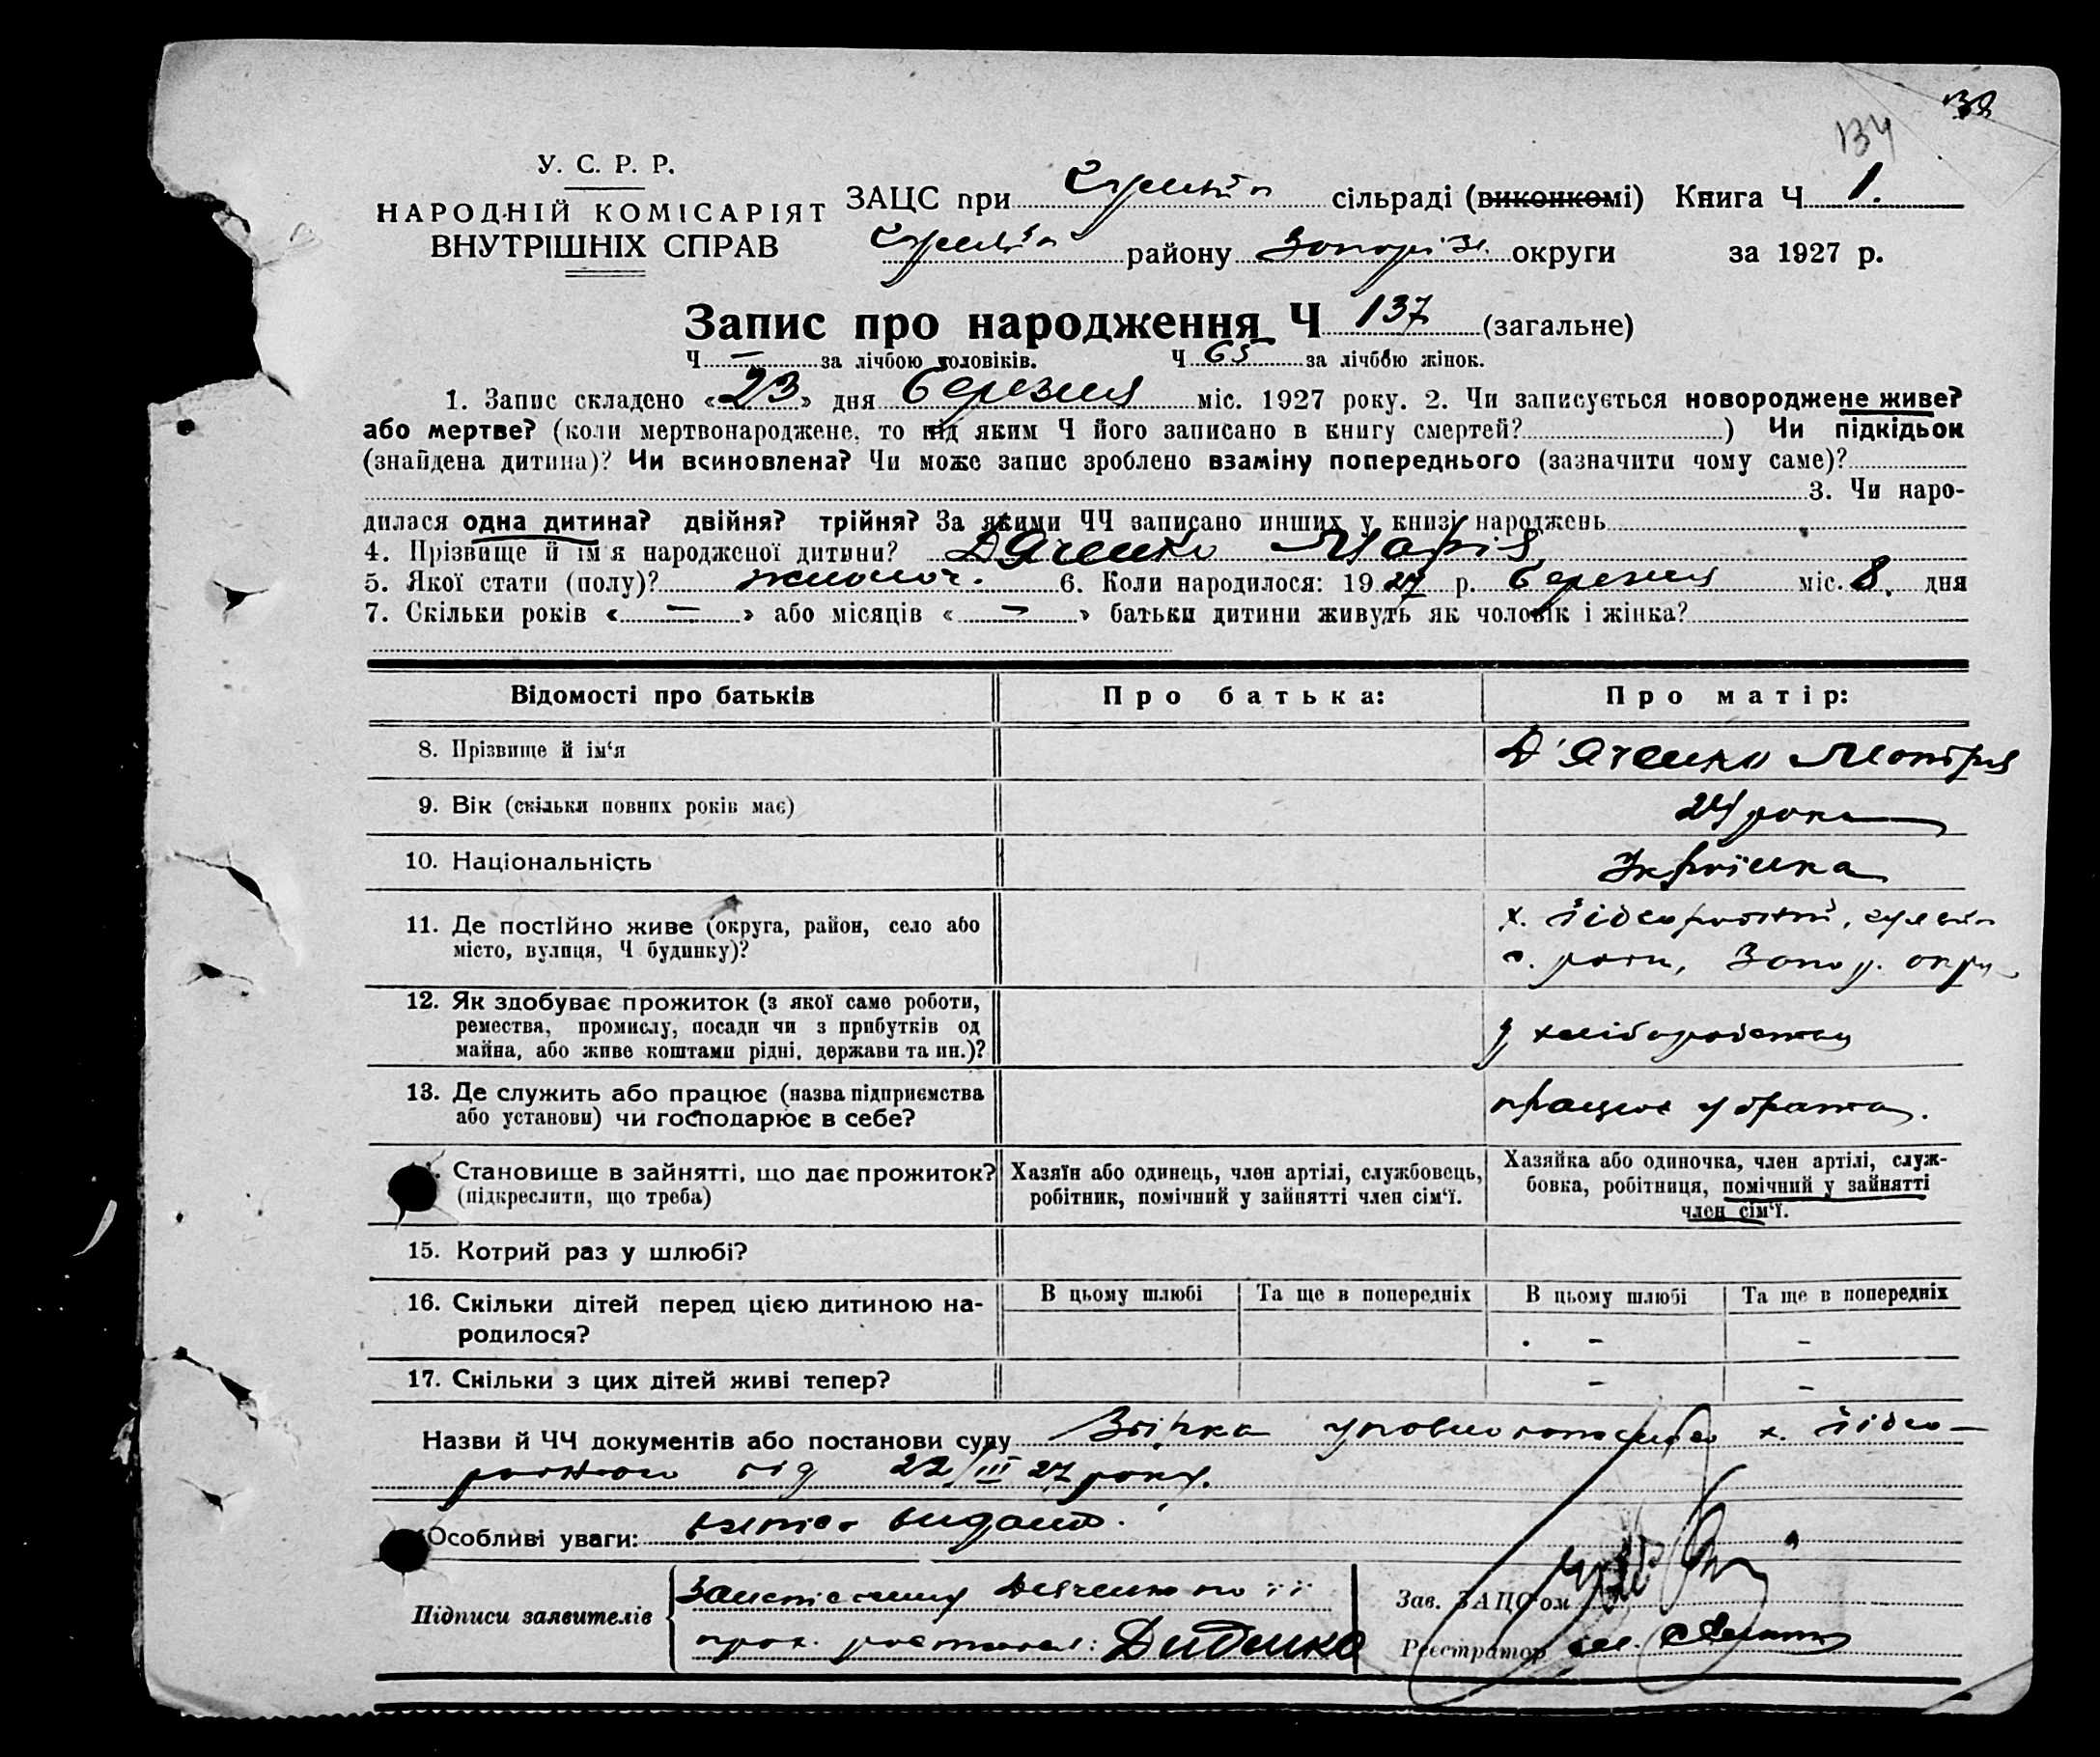 134
У. С. Р. Р.
НАРОДНІЙ КОМІСАРІЯТ
ВНУТРІШНІХ СПРАВ
ЗАЦС при сільраді (виконкомі) Книга Ч 1.
району Запоріз. округи за 1927 р.
Запис про народження Ч 137 (загальне)
Ч — за лічбою чоловіків. Ч 65 за лічбою жінок.
1. Запис складено «23» дня березня міс. 1927 року. 2. Чи записується новороджене живе?
або мертве? (коли мертвонароджене, то під яким Ч його записано в книгу смертей?) Чи підкідьок
(знайдена дитина)? Чи всиновлена? Чи може запис зроблено взаміну попереднього (зазначити чому саме)?
3. Чи наро-
дилася одна дитина? двійня? трійня? За якими ЧЧ записано инших у книзі народжень
4. Прізвище й ім'я народженої дитини? Дяченко Марія
5. Якої стати (полу)? жіноч. 6. Коли народилося: 1927 р. березня міс. 8. дня
7. Скільки років «—» або місяців «—» батьки дитини живуть як чоловік і жінка?
Відомості про батьків Про батька: Про матір:
8. Прізвище й ім'я Д'яченко Мотря
9. Вік (скільки повних років має) 24 роки
10. Національність Українка
11. Де постійно живе (округа, район, село або
місто, вулиця, Ч будинку)?
х. , 
г. рай, Запор. окру
12. Як здобуває прожиток (з якої саме роботи,
ремества, промислу, посади чи з прибутків од
майна, або живе коштами рідні, держави та ин.)?
з хліборобства
13. Де служить або працює (назва підприємства
або установи) чи господарює в себе?
працює у брата.
Становище в зайнятті, що дає прожиток?
(підкреслити, що треба)
Хазяїн або одинець, член артілі, службовець,
робітник, помічний у зайнятті член сім'ї.
Хазяйка або одиночка, член артілі, служ-
бовка, робітниця, помічний у зайнятті
член сім'ї.
15. Котрий раз у шлюбі?
16. Скільки дітей перед цією дитиною на-
родилося?
В цьому шлюбі Та ще в попередніх В цьому шлюбі Та ще в попередніх
— —
17. Скільки з цих дітей живі тепер? — —
Назви й ЧЧ документів або постанови суду уповноваженого х.
від 22/III 27 року.
Особливі уваги: видано.
Підписи заявителів Дяченко по її
прох. Диденко
Зав. ЗАЦС'ом
Реєстратор